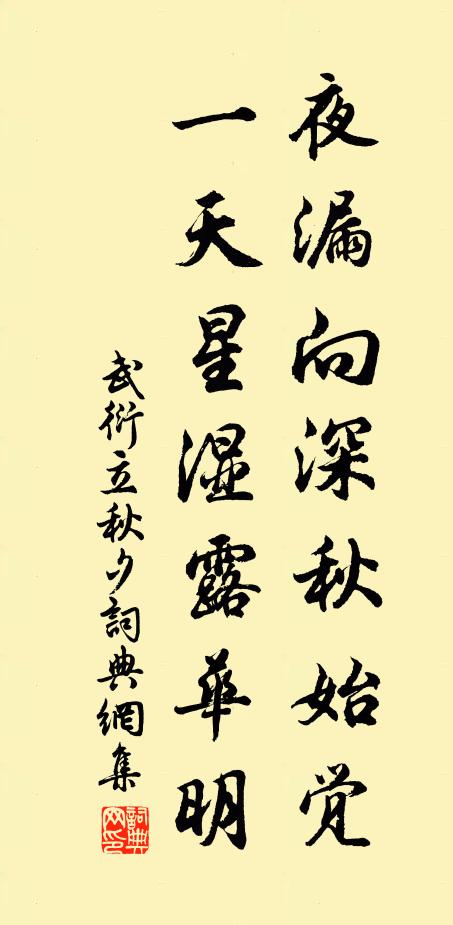 夜漏向深秋始觉
一天星湿露华明
武衍立秋夕詞典網集
詞典網印